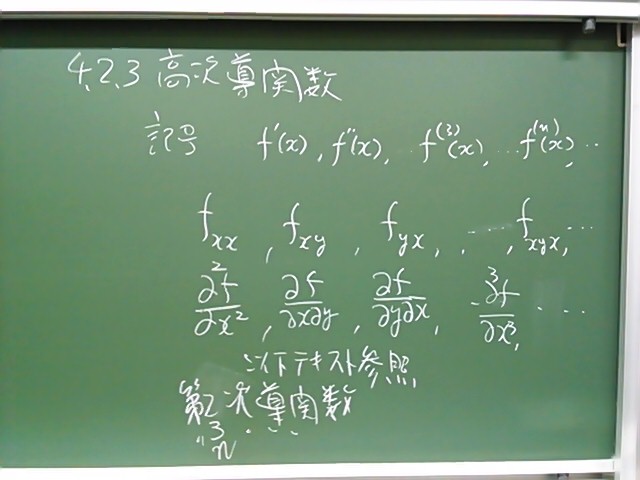 4.2.3 高次導関数
記号 f'(x), f''(x), … f^{(3)}(x), … f^{(n)}(x), …
f_{xx}, f_{xy}, f_{yx}, …, f_{xyx}, …
∂²f/∂x², ∂f/∂x∂y, ∂f/∂y∂x, ∂³f/∂x³, …
以下テキスト参照
第2次導関数
〃 3 〃
n